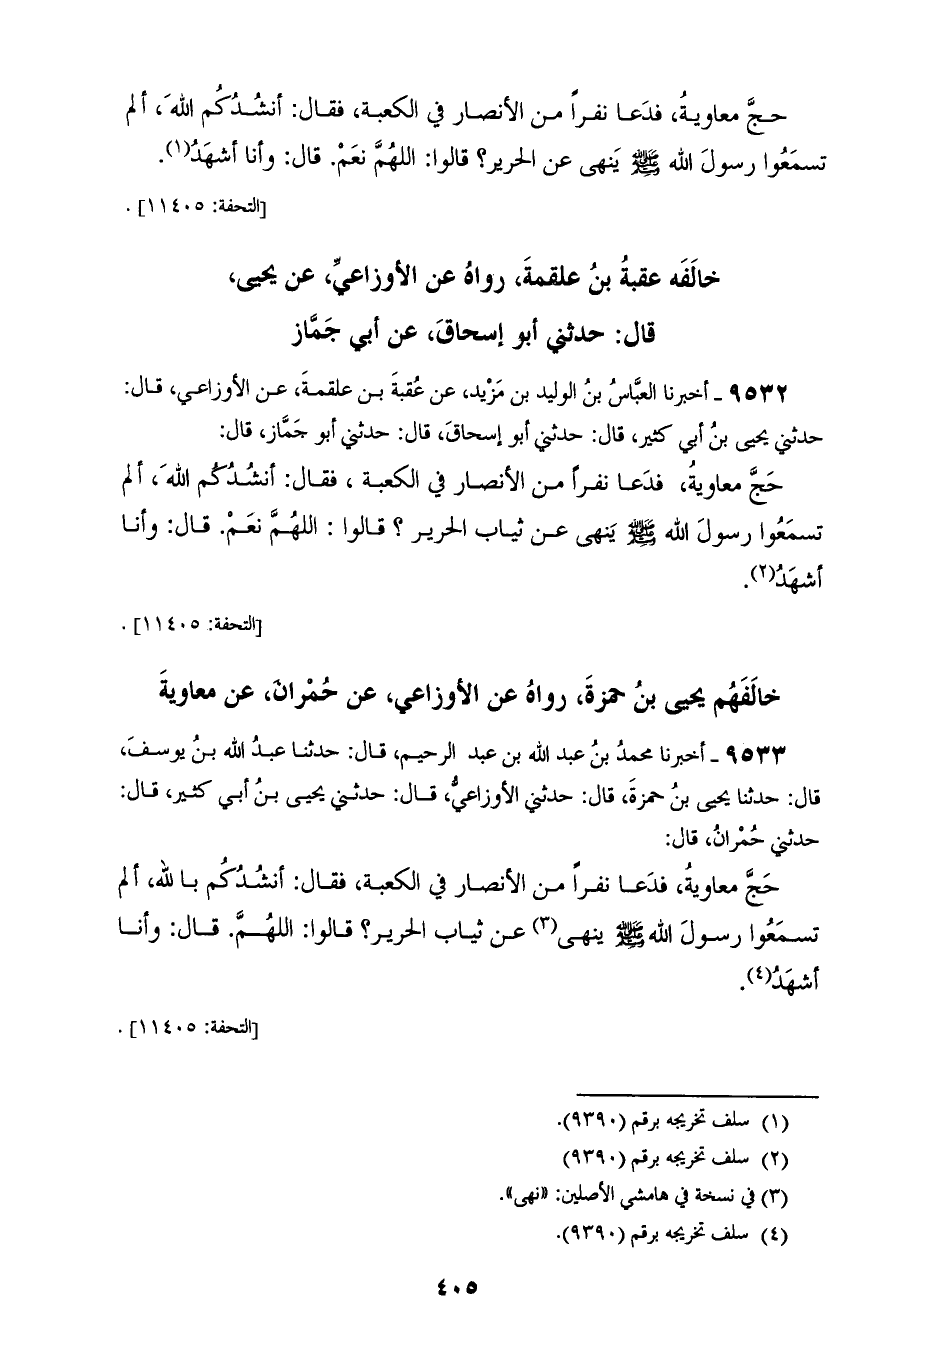 حـجَّ معاويـةُ، فدَعـا نفـراً مـن الأنصـار في الكعبـة، فقـال: أنشُـدُكُم اللهَ، ألم
تسمَعُوا رسولَ الله ﷺ يَنهى عن الحرير؟ قالوا: اللهُمَّ نعَمْ. قال: وأنا أشهَدُ(١).
[التحفة: ١١٤٠٥] .
خالَفَه عقبةُ بنُ علقمةَ، رواهُ عن الأوزاعيِّ، عن يحيى،
قال: حدثني أبو إسحاقَ، عن أبي جَمَّاز
٩٥٣٢ ـ أخبرنا العبَّاسُ بنُ الوليد بن مَزْيد، عن عُقبةَ بـن علقمـةَ، عـن الأوزاعـي، قـال:
حدثني يحيى بنُ أبي كثير، قال: حدثني أبو إسحاقَ، قال: حدثني أبو جَمَّاز، قال:
حَجَّ معاويـةُ، فدَعـا نفـراً مـن الأنصـار في الكعبـة ، فقـال: أنشُدُكُم اللهَ، ألم
تسمَعُوا رسولَ الله ﷺ يَنهى عـن ثيـاب الحريـر ؟ قـالوا : اللهُـمَّ نعَـمْ. قـال: وأنـا
أشهَدُ(٢).
[التحفة: ١١٤٠٥] .
خالَفَهُم يحيى بنُ حمزةَ، رواهُ عن الأوزاعي، عن حُمْرانَ، عن معاويةَ
٩٥٣٣ ـ أخبرنا محمدُ بنُ عبد الله بن عبد الرحيم، قـال: حدثنـا عبـدُ الله بـنُ يوسـفَ،
قال: حدثنا يحيى بنُ حمزةَ، قال: حدثني الأوزاعيُّ، قـال: حدثـني يحيـى بـنُ أبـي كثـير، قـال:
حدثني حُمْرانُ، قال:
حَجَّ معاويـةُ، فدَعـا نفـراً مـن الأنصـار في الكعبـة، فقـال: أنشُدُكُم بـالله، ألم
تسـمَعُوا رسـولَ الله ﷺ ينهـى(٣) عـن ثيـاب الحريـر؟ قـالوا: اللهُـمَّ. قـال: وأنـا
أشهَدُ(٤).
[التحفة: ١١٤٠٥] .
(١) سلف تخريجه برقم (٩٣٩٠).
(٢) سلف تخريجه برقم (٩٣٩٠)
(٣) في نسخة في هامشي الأصلين: «نهى».
(٤) سلف تخريجه برقم (٩٣٩٠).
٤٠٥